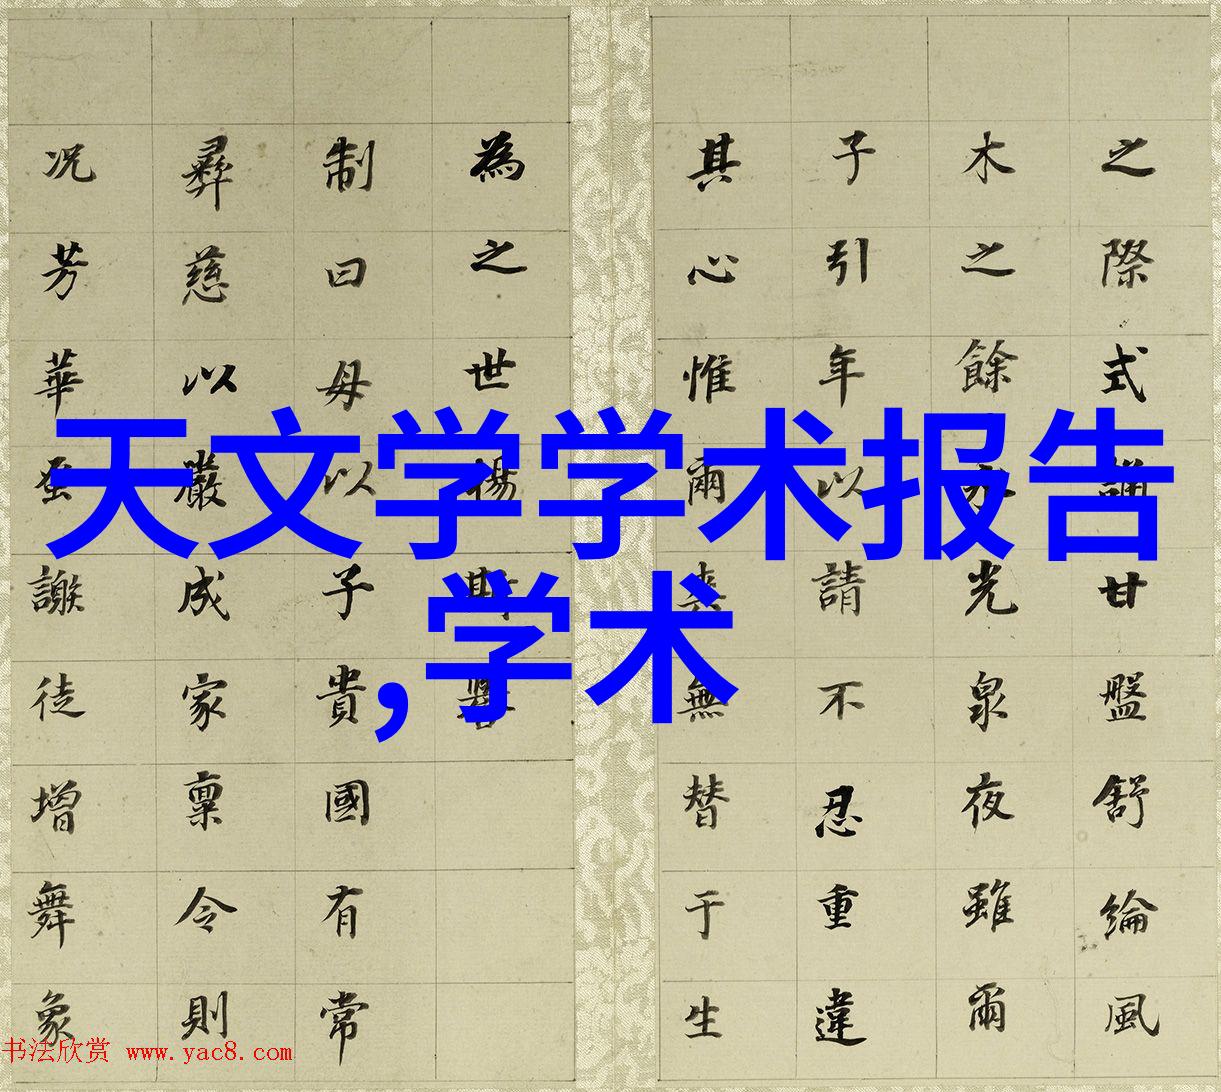 之際式誦甘盤舒綸風
木之餘永光泉夜雖爾
子引年以請不忍重違
其心惟爾無替于生
為之世
制曰母以子貴國有常
彝慈以嚴成家稟令則
況芳華蚤謝徒增舞象
天文学学术报告
,学术
书法欣赏 www.yac8.com